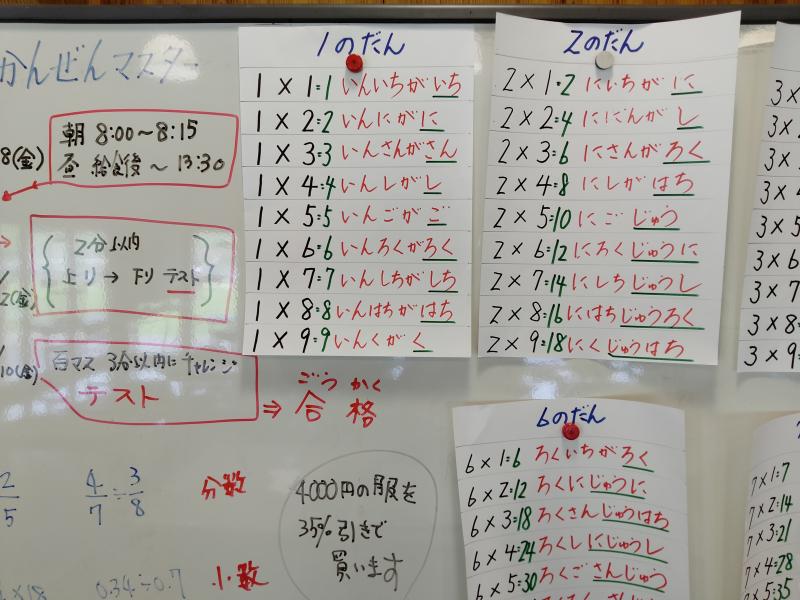 かんぜんマスター
8(金)
朝 8:00～8:15
昼 給食後～13:30
20(金)
2分以内
上り→下り テスト
10(金)
百マス 3分以内にチャレンジ
テスト
⇒ 合格
ごうかく
2/5
4/7÷3/8
分数
×18
0.34÷0.7
小数
4000円の服を
35%引きで
買います
1のだん
1×1=1 いんいちがいち
1×2=2 いんにがに
1×3=3 いんさんがさん
1×4=4 いんしがし
1×5=5 いんごがご
1×6=6 いんろくがろく
1×7=7 いんしちがしち
1×8=8 いんはちがはち
1×9=9 いんくがく
2のだん
2×1=2 にいちがに
2×2=4 ににんがし
2×3=6 にさんがろく
2×4=8 にしがはち
2×5=10 にごじゅう
2×6=12 にろくじゅうに
2×7=14 にしちじゅうし
2×8=16 にはちじゅうろく
2×9=18 にくじゅうはち
3×
3×
3×
3×
3×5
3×6
3×7
3×8=
3×9=
6のだん
6×1=6 ろくいちがろく
6×2=12 ろくにじゅうに
6×3=18 ろくさんじゅうはち
6×4=24 ろくしにじゅうし
6×5=30 ろくごさんじゅう
7×1=7
7×2=14
7×3=21
7×4=28
7×5=35